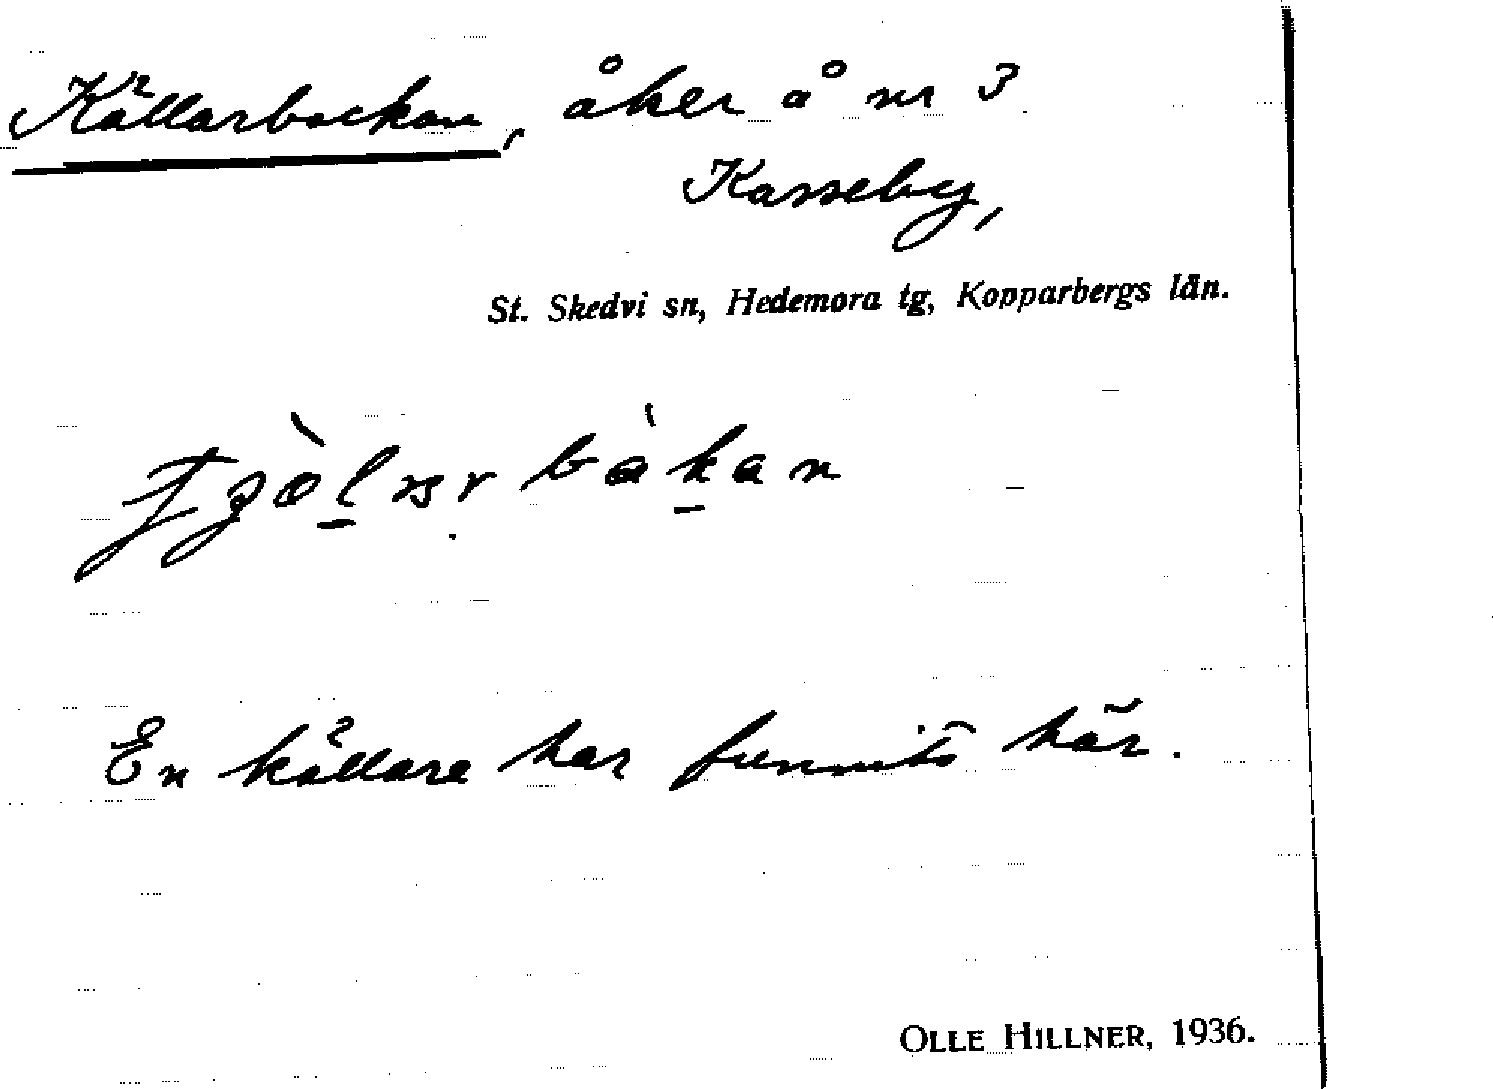 Källarbackan, åker å nr 3
Kasseby,
St. Skedvi sn, Hedemora tg, Kopparbergs län.
En källare har funnits här.
OLLE HILLNER, 1936.